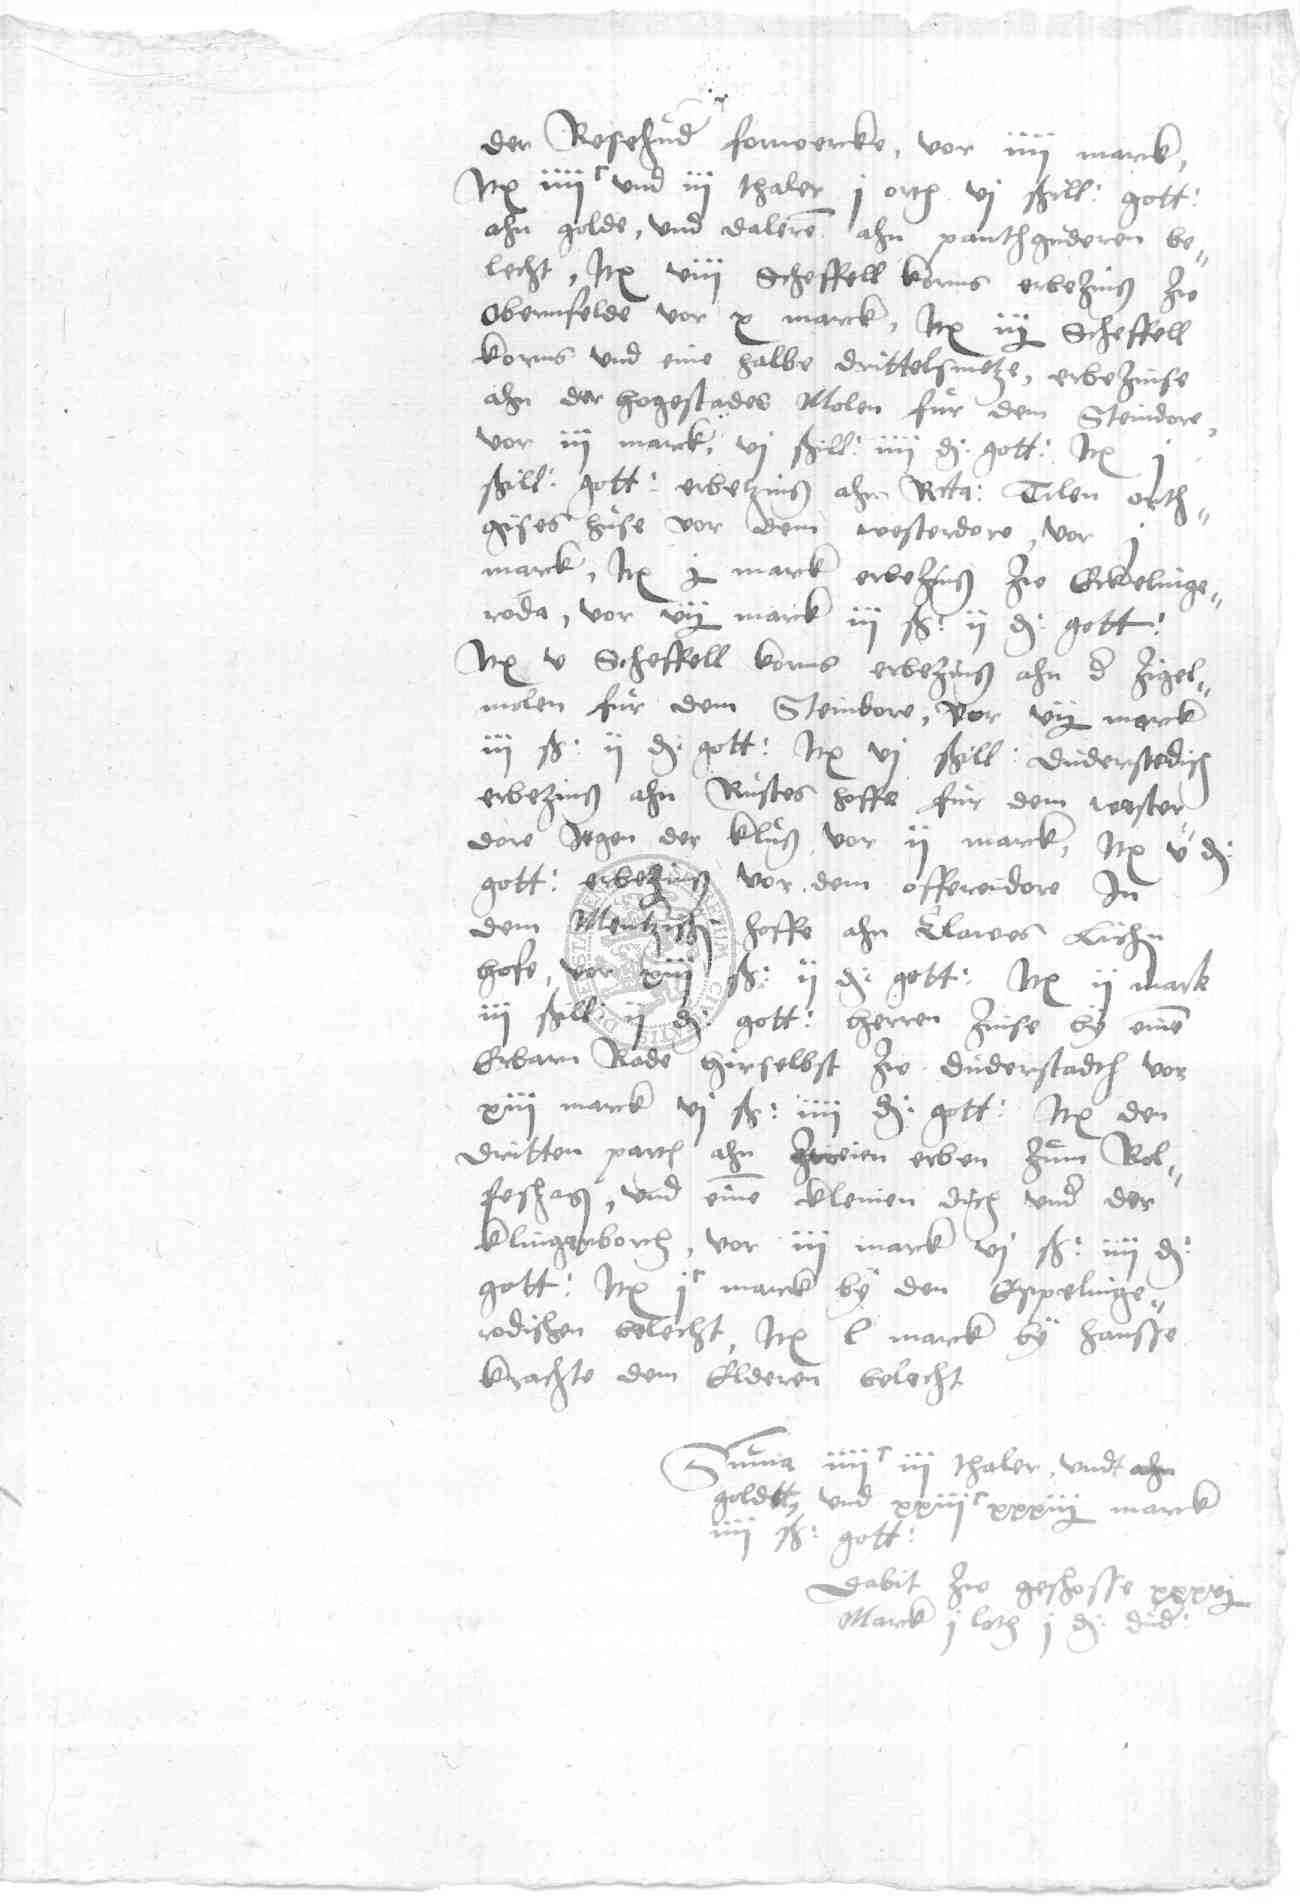 der Resehud forwercke, vor iiij marck,
Itz iiij c vnd iij thaler j orth vj ßill: gott:
ahn golde, vnd daleren ahn panthguderen be„
lecht, Itz viij Scheffell korns erbezinß zu
Obernfelde vor x marck, Itz iij Scheffell
korns vnd eine halbe drittelsmetze, erbezinse
ahn der hogestades Molen für dem Steindore,
vor iij marck, vj ßill: iiij d: gott: Itz j
ßill: gott: erbezinß ahn Tilen orth„
gises huse vor dem westerdore, vor j
marck, Itz marck erbezinß zu Esplinge„
roda, vor marck iij ß: ij d: gott:
Itz v Scheffell korns erbezinß ahn d Zigel„
molen für dem Steindore, Vor marck
iij ß: ij d: gott: Itz vj ßill: duderstedisch
erbezinß ahn Rustes hoffe für dem wester
dore Jegen der kluß vor ij marck, Itz v d:
gott: erbezinß vor dem offerendore In
dem Mentzischen hoffe ahn Clawes
hofe, vor xiij ß: ij d: gott: Itz ij mark
iij ßill: ij d: gott: herren zinse by eine
Erbarn Rade hirselbst zu duderstadth vor
xiij marck vj ß: iiij d: gott: Itz den
dritten parth ahn zweien erben zum Rol„
feshagen, vnd eine kleinen dich vnd der
klingerborch, vor iij marck vj ß: iiij d:
gott: Itz j c marck by den Espelinge„
rodischen belecht, Itz l marck by hansse
krachte dem Elderen belecht
Suma iiij c iij thaler, vndt ahn
goldtt, vnd xxiij c marck
iiij ß: gott:
Dabit zu geschosse
Marck j loth j d: dud: